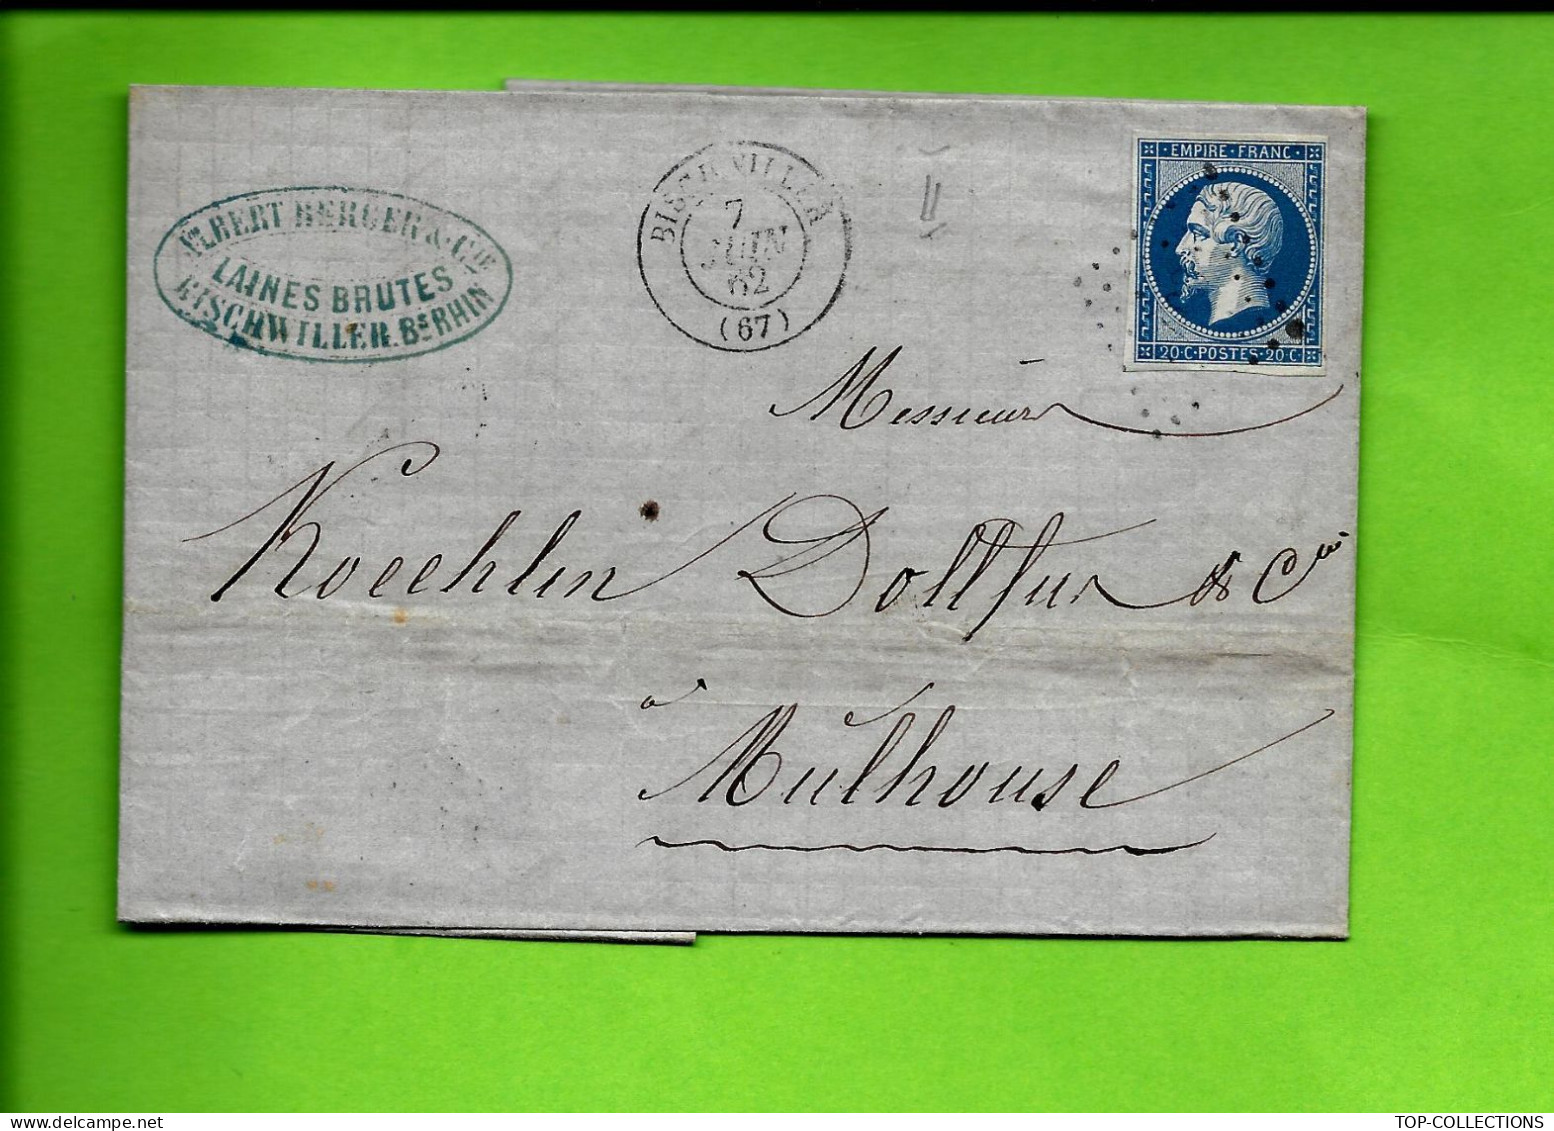 ALBERT BERGER & Cie
LAINES BRUTES
BISCHWILLER. Bs RHIN
BISCHWILLER
7
JUIN
62
(67)
EMPIRE·FRANC·
20·C·POSTES·20·C·
Messieurs
Koechlin Dollfus & Cie
à
Mulhouse
TOP-COLLECTIONS